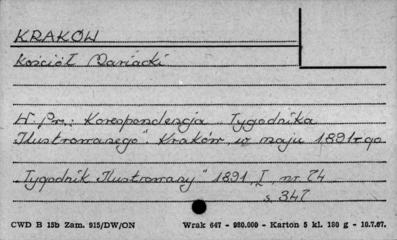 KRAKÓW
Kościół Mariacki
W. Pr.: Korespondencja Tygodnika
Ilustrowanego". Kraków w maju 1891-go
"Tygodnik Ilustrowany" 1891, I, nr 74
s. 347
CWD B 15b Zam. 915/DW/ON Wrak 647 - 980.000 - Karton 5 kl. 180 g - 18.7.67.